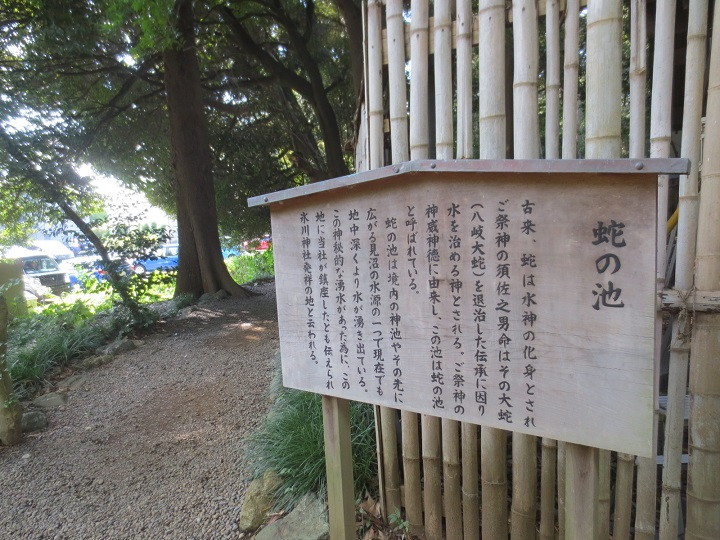 蛇の池
古来、蛇は水神の化身とされ
ご祭神の須佐之男命はその大蛇
(八岐大蛇)を退治した伝承に因り
水を治める神とされる。ご祭神の
神威神徳に由来し、この池は蛇の池
と呼ばれている。
蛇の池は境内の神池やその先に
広がる見沼の水源の一つで現在でも
地中深くより水が湧き出ている。
この神秘的な湧水があった為に、この
地に当社が鎮座したとも伝えられ
氷川神社発祥の地と云われる。